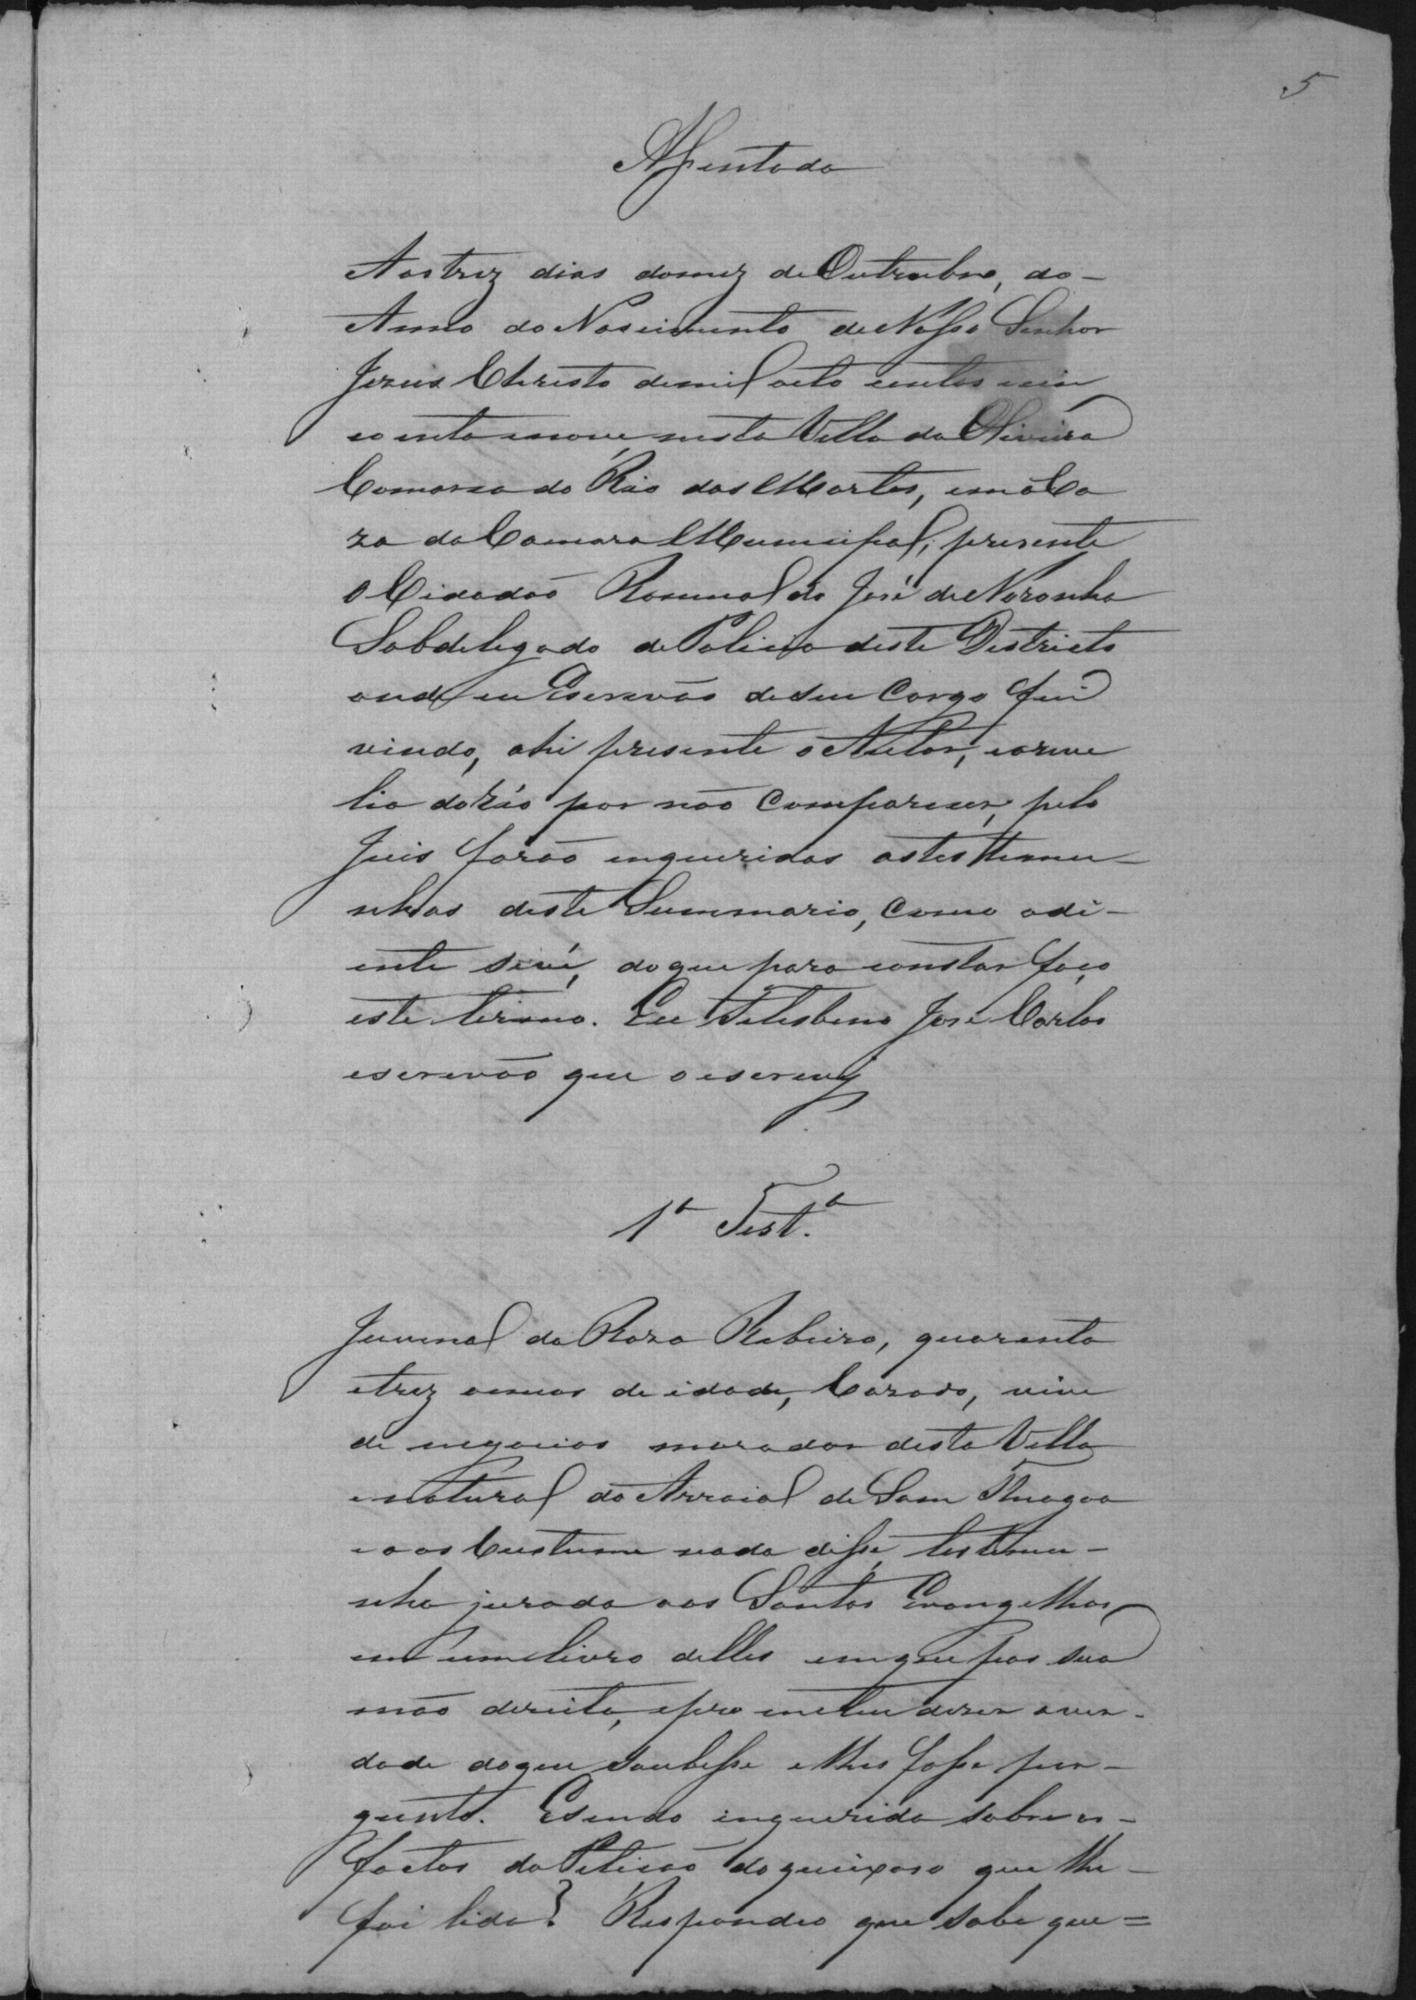 5
Assentada
Aos trez dias do mez de Outrubro, do-
Anno do Nascimento de Nosso Senhor
Jezus Christo de mil oito centos cin
coenta e nove nesta Villa da Oliveira
Comarca do Rio das Mortes, em a Ca
za da Camara Municipal, presente
o Cidadão Romualdo José de Noronha
Sobdelegado de Policia deste Districto
onde eu Escrivão de seu Cargo fui
vindo, ahi presente o Autor, e a reve
lia do réo por não Comparecer, pelo
Juis forão enqueridas as testtemu-
nhas deste Summario, Como adi-
ente se vê, do que para constar faço
este termo. Eu Telesbino José Carlos
escrevão que o escrevy
1ª Test.ª
Juvenal da Roza Rebeiro, quarenta
e trez annos de idade, Cazado, vive
de negocios morador desta Villa
e natural do Arraial de Sam Thiagoa
e aos Custume nada disse, testemu-
nha jurada aos Santos Evangelhos
em um livro delles em que pos sua
mão direita, e prometeu dizer a ver-
dade do que soubesse e lhes fosse per-
gunto. E sendo inquerida sobre os-
factos da Peticão do queixoso que lhe-
foi lida? Respondeo que sabe que=